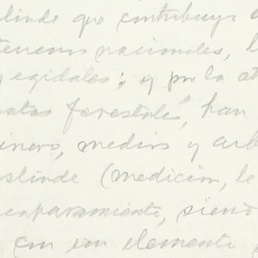 linde que contribuya a
terrenos nacionales, l
y egidales; y por la ot
forestales", han
inero, medios y
slinde (medición, le
amparamiento, siend
con un elemento